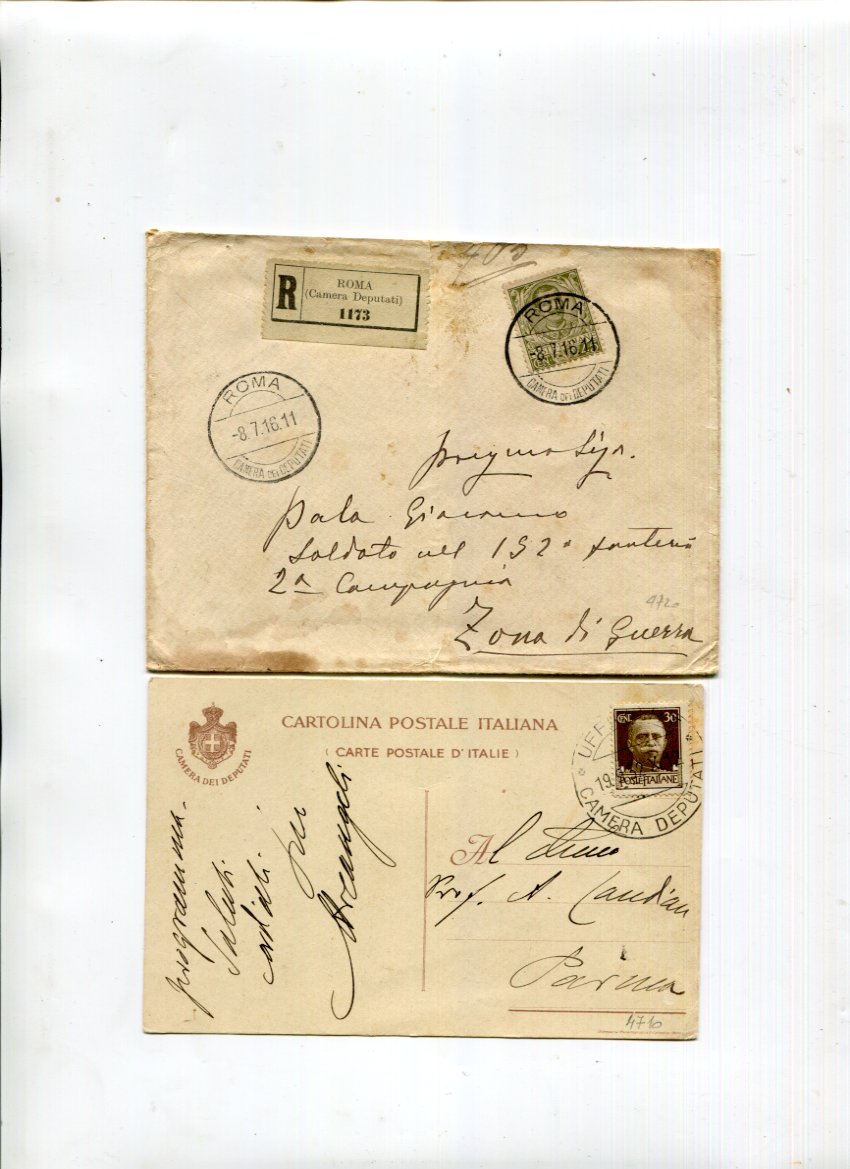 403
R
ROMA
(Camera Deputati)
1173
ROMA
-8.7.16.11
CAMERA DEI DEPUTATI
ROMA
-8.7.16.11
CAMERA DEI DEPUTATI
Sigr.
Pala Giacomo
Soldato nel 152° fanteria
2a Compagnia
4720
Zona di Guerra
CARTOLINA POSTALE ITALIANA
(CARTE POSTALE D'ITALIE)
CAMERA DEI DEPUTATI
CENT. 30
POSTE ITALIANE
UFF
19
CAMERA DEPUTATI
programma.
Saluti
cordiali
Arcangeli
Al
Prof. A. Candian
Parma
4710